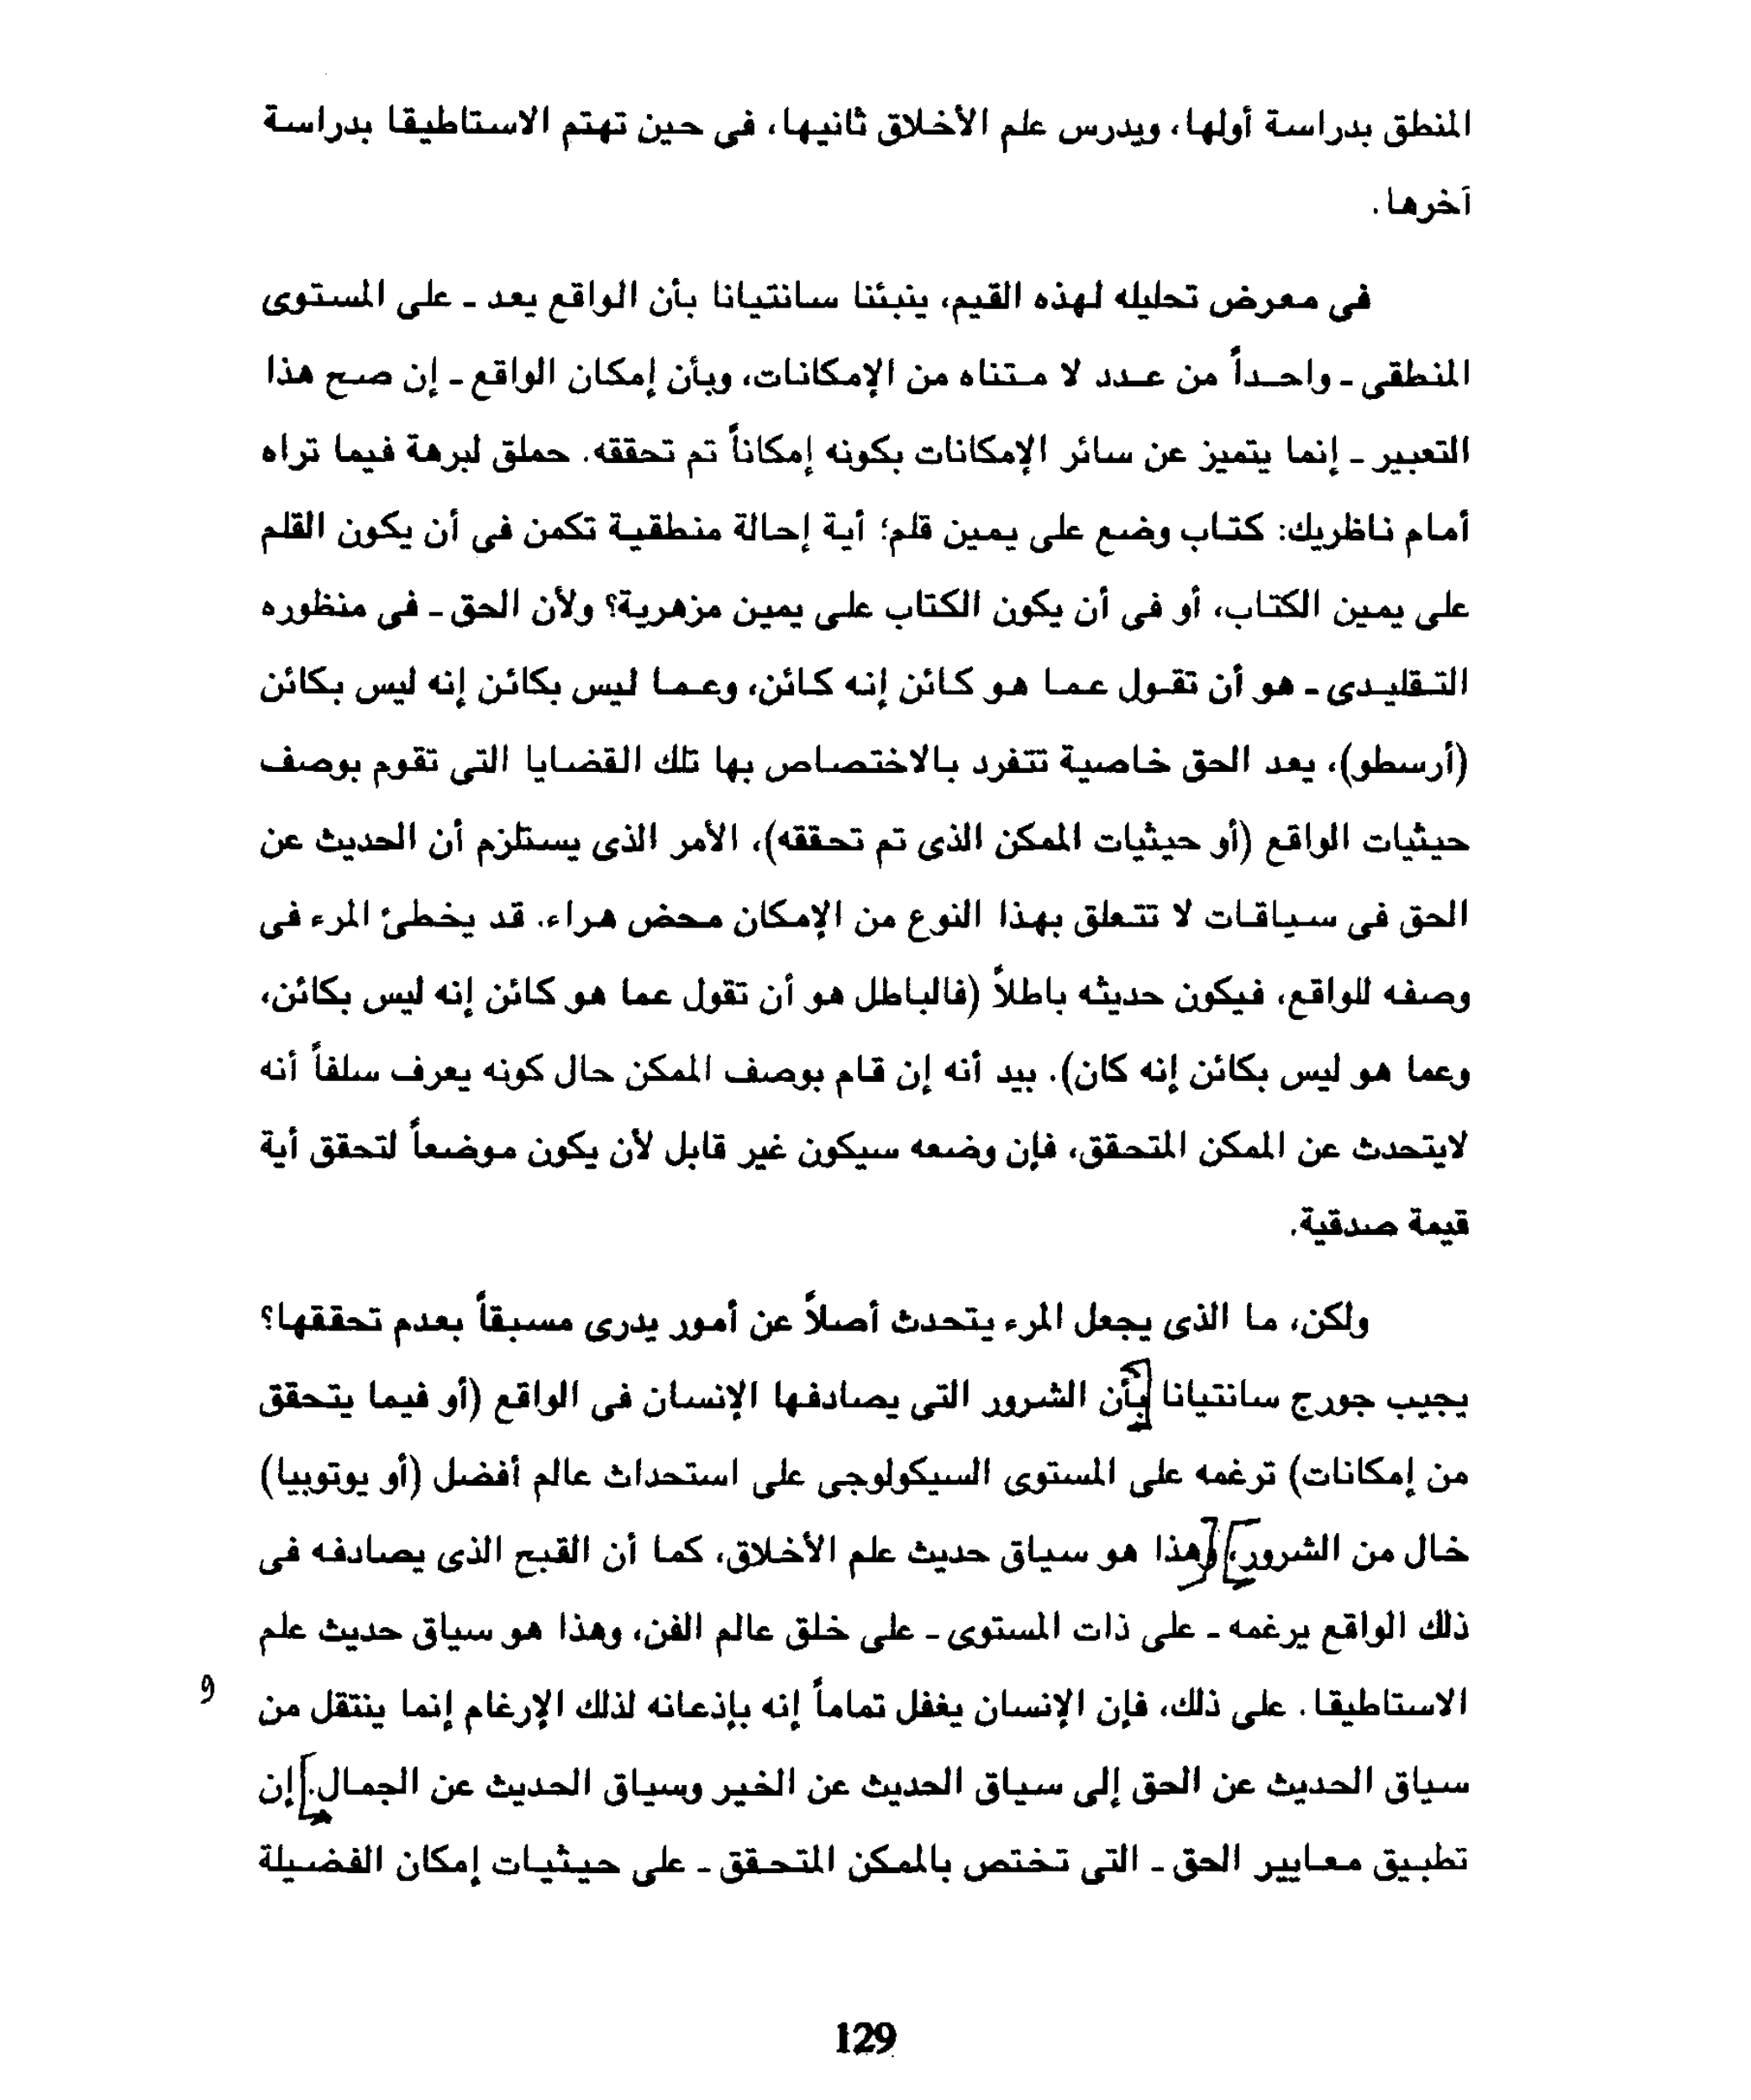 المنطق بدراسة أولها، ويدرس علم الأخلاق ثانيها، فى حين تهتم الاستاطيقا بدراسة
آخرها.
فى معرض تحليله لهذه القيم، ينبئنا سانتيانا بأن الواقع يعد ـ على المستوى
المنطقى ـ واحداً من عدد لا متناه من الإمكانات، وبأن إمكان الواقع ـ إن صح هذا
التعبير ـ إنما يتميز عن سائر الإمكانات بكونه إمكاناً تم تحققه. حملق لبرهة فيما تراه
أمام ناظريك: كتاب وضع على يمين قلم؛ أية إحالة منطقية تكمن فى أن يكون القلم
على يمين الكتاب، أو فى أن يكون الكتاب على يمين مزهرية؟ ولأن الحق ـ فى منظوره
التقليدى ـ هو أن تقول عما هو كائن إنه كائن، وعما ليس بكائن إنه ليس بكائن
(أرسطو)، يعد الحق خاصية تتفرد بالاختصاص بها تلك القضايا التى تقوم بوصف
حيثيات الواقع (أو حيثيات الممكن الذى تم تحققه)، الأمر الذى يستلزم أن الحديث عن
الحق فى سياقات لا تتعلق بهذا النوع من الإمكان محض هراء. قد يخطئ المرء فى
وصفه للواقع، فيكون حديثه باطلاً (فالباطل هو أن تقول عما هو كائن إنه ليس بكائن،
وعما هو ليس بكائن إنه كان). بيد أنه إن قام بوصف الممكن حال كونه يعرف سلفاً أنه
لايتحدث عن الممكن المتحقق، فإن وضعه سيكون غير قابل لأن يكون موضعاً لتحقق أية
قيمة صدقية.
ولكن، ما الذى يجعل المرء يتحدث أصلاً عن أمور يدرى مسبقاً بعدم تحققها؟
يجيب جورج سانتيانا بأن الشرور التى يصادفها الإنسان فى الواقع (أو فيما يتحقق
من إمكانات) ترغمه على المستوى السيكولوجى على استحداث عالم أفضل (أو يوتوبيا)
خال من الشرور، وهذا هو سياق حديث علم الأخلاق، كما أن القبح الذى يصادفه فى
ذلك الواقع يرغمه ـ على ذات المستوى ـ على خلق عالم الفن، وهذا هو سياق حديث علم
الاستاطيقا. على ذلك، فإن الإنسان يغفل تماماً إنه بإذعانه لذلك الإرغام إنما ينتقل من
و
سياق الحديث عن الحق إلى سياق الحديث عن الخير وسياق الحديث عن الجمال. إن
تطبيق معايير الحق ـ التى تختص بالممكن المتحقق ـ على حيثيات إمكان الفضيلة
129